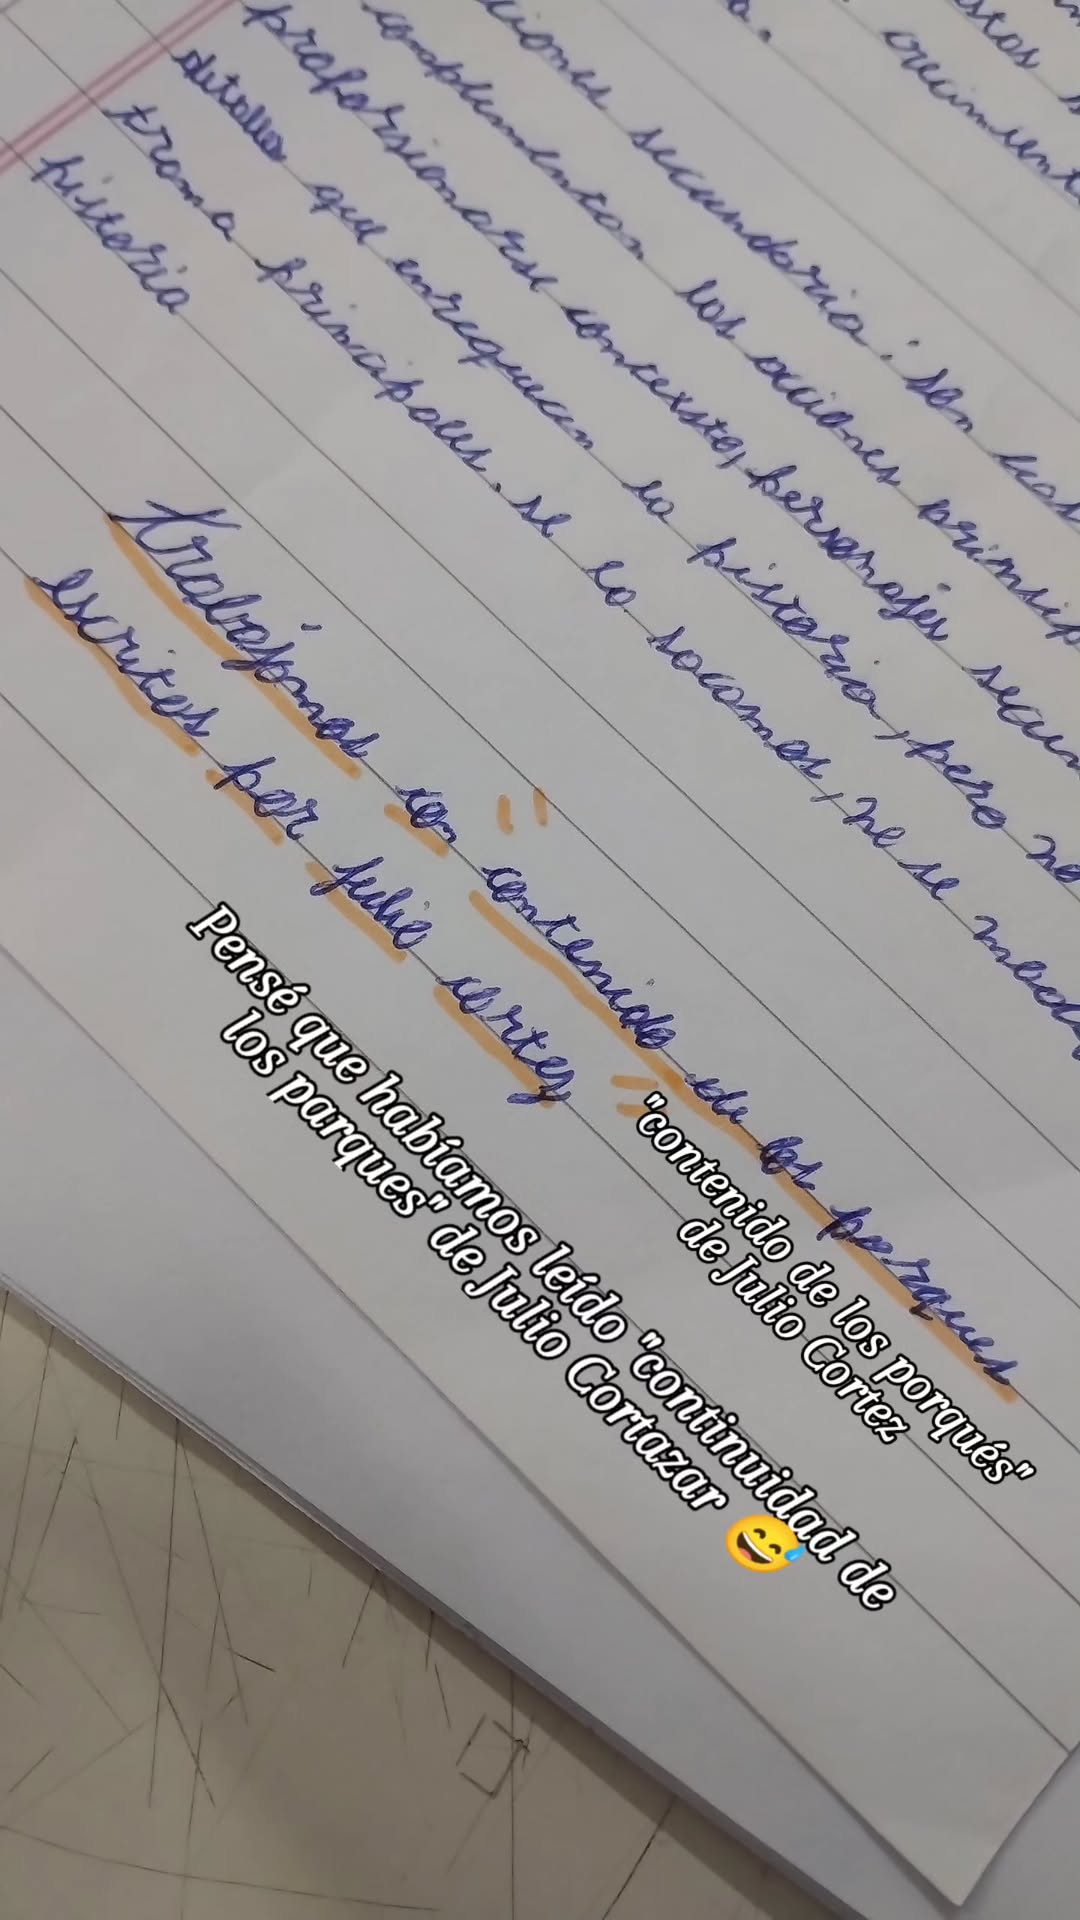 stos s
crecimient
a.
ciones secundaria: son las
complementan los acciones prinsip
proporsionarse concexto, personajes secun
detalles que enrequecen la pistoria, pero no
trama principalles. se lo socamos, no se modi
pistoria
Trabajamos con "contenido de los porques"
escritos por julio cortez
"contenido de los porqués"
de Julio Cortez
Pensé que habíamos leído "continuidad de
los parques" de Julio Cortazar 😅